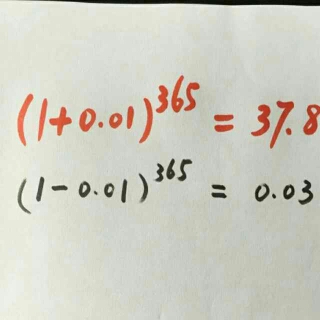 (1+0.01)^365 = 37.8
(1-0.01)^365 = 0.03